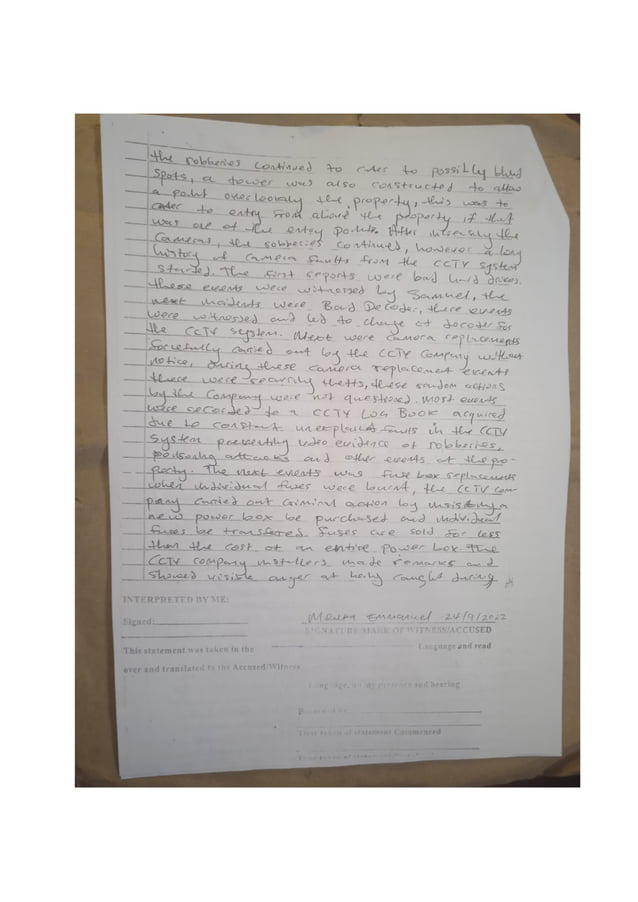 the robberies continued to cater to possilby blind
spots, a tower was also constructed to allow
a point overlooking the property, this was to
cater to entry from above the property if that
was one of the entry points. After the
cameras, the robberies continued, however a long
history of camera faults from the CCTV system
started. The first reports were bad hard drives.
these events were witnessed by Samuel, the
next incidents were Bad Decoder, these events
were witnessed and led to change of decoder for
the CCTV system. Next were camera replacements
carried out by the CCTV Company without
notice, during these camera replacement events
there were security thefts, these random actions
by the Company were not questioned. Most events
were recorded to a CCTV Log Book acquired
due to constant unexplained faults in the CCTV
System preventing video evidence of robberies,
poisoning attacks and other events at the pro-
perty. The next events was fuse box replacements
when individual fuses were burnt, the CCTV com-
pany carried out criminal action by insisting a
new power box be purchased and individual
fuses be transferred. Fuses are sold for less
than the cost of an entire power box. The
CCTV company installers made remarks and
showed visible anger at being caught during
INTERPRETED BY ME:
Signed:
Emmanuel 24/9/2022
SIGNATURE/MARK OF WITNESS/ACCUSED
This statement was taken in the Language and read
over and translated to the Accused/Witness
Language, in my presence and hearing
Recorded by
Time taken of statement Commenced